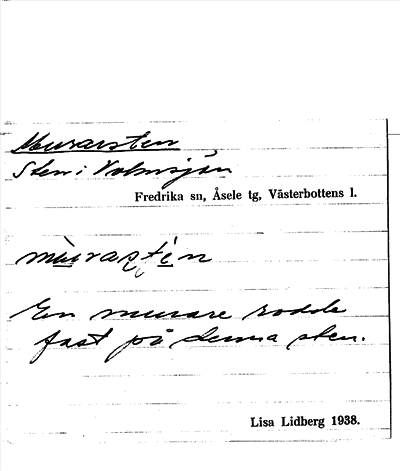 Murarsten
Sten i Volmsjön
Fredrika sn, Åsele tg, Västerbottens l.
mùrasţén
En murare rodde
fast på denna sten.
Lisa Lidberg 1938.